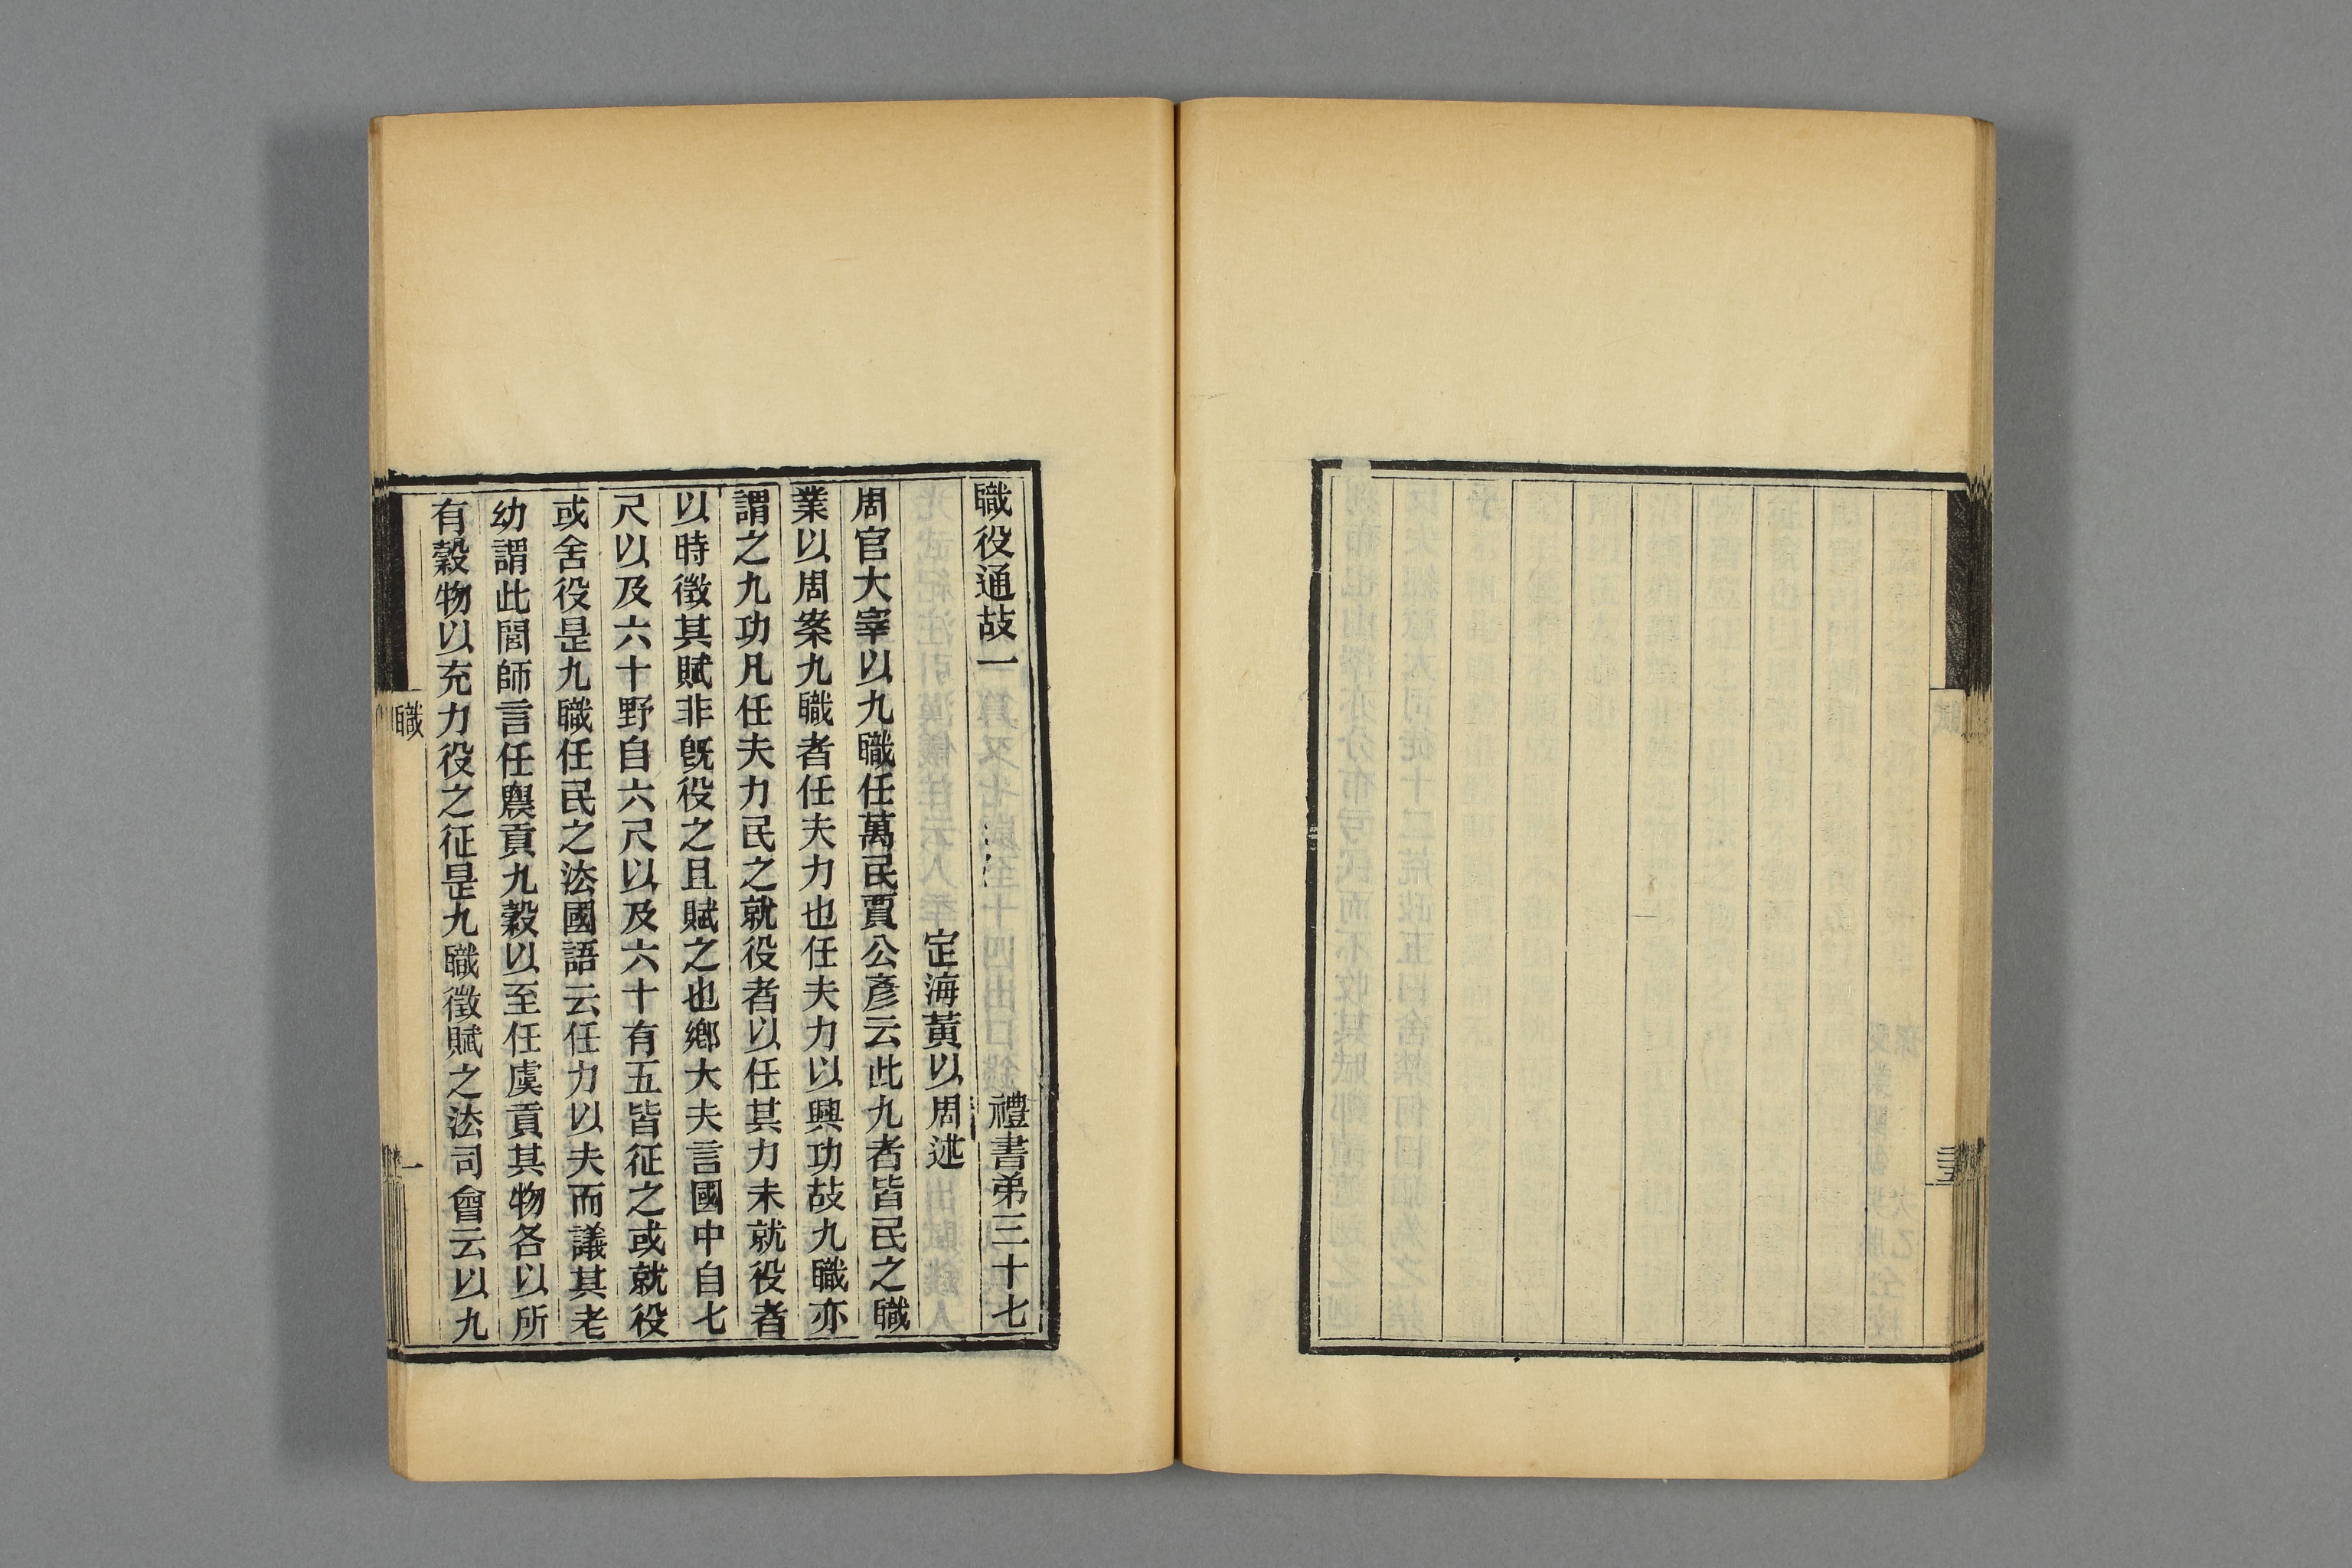 職役通故一 禮書弟三十七
定海黃以周述
周官大宰以九職任萬民賈公彥云此九者皆民之職
業以周案九職者任夫力也任夫力以興功故九職亦
謂之九功凡任夫力民之就役者以任其力未就役者
以時徵其賦非旣役之且賦之也鄉大夫言國中自七
尺以及六十野自六尺以及六十有五皆征之或就役
或舍役是九職任民之法國語云任力以夫而議其老
幼謂此閭師言任農貢九穀以至任虞貢其物各以所
有穀物以充力役之征是九職徵賦之法司會云以九
職 一